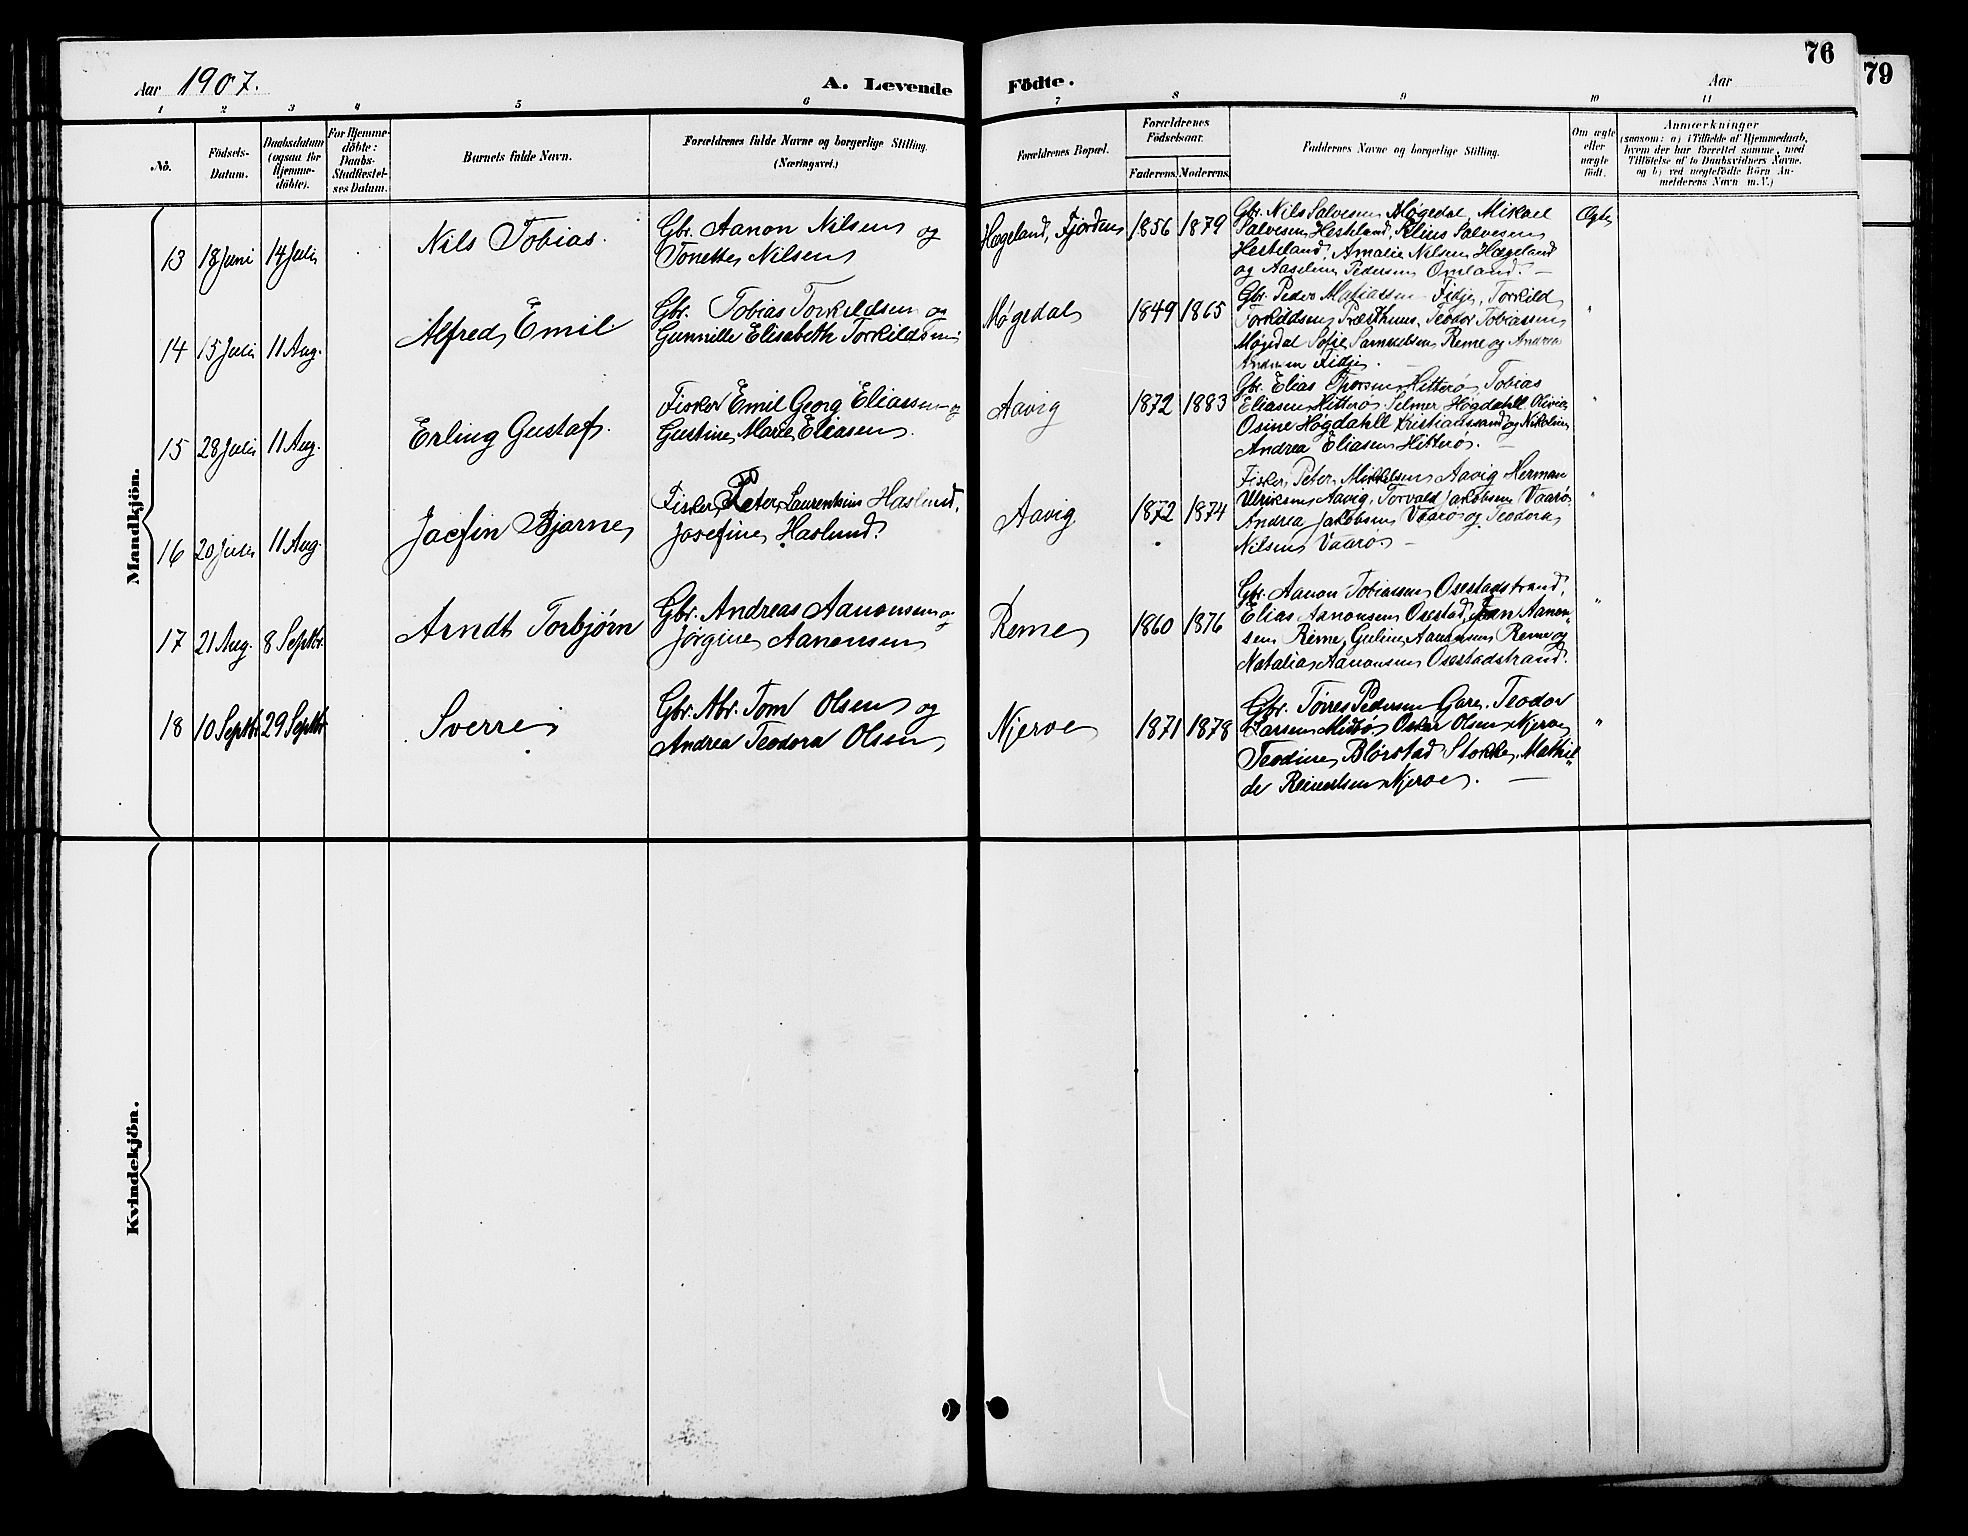 76
79
Aar 1907.
A. Levende Födte.
Aar
1 2 3 4 5 6 7 8 9 10 11
No.
Födsels-
Datum.
Daabsdatum
(ogsaa for
Hjemme-
döbte).
For Hjemme-
döbte:
Daabs-
Stadfæstel-
ses Datum.
Barnets fulde Navn.
Forældrenes fulde Navne og borgerlige Stilling.
(Næringsvei.)
Forældrenes Bopæl.
Forældrenes
Födselsaar.
Faderens. Moderens.
Faddernes Navne og borgerlige Stilling.
Om ægte
eller
uægte
födt.
Anmærkninger
(saasom: a) i Tilfælde af Hjemmedaab,
hvem der har forrettet samme, med
Tilföielse af to Daabsvidners Navne.
og b) ved uægtefödte Börn An-
melderens Navn m. V.)
Mandkjön.
13 18 Juni 14 Juli
Nils Tobias.
Gbr. Aanon Nilsen og
Tonette Nilsen
Hægeland, Fjorden
1856 1879
Gbr. Nils Salvesen Møgedal, Mikael
Salvesen Hesteland, Salvesen
Hesteland, Amalie Nilsen Hægeland
og Aaselene Pedersen Omland. —
Ægte
14 15 Juli 11 Aug.
Alfred Emil.
Gbr. Tobias Torkildsen og
Gunnille Elisabeth Torkildsen
Møgedal
1849 1865
Gbr. Peder Matiassen Fidje, Torkild
Torkildsen Præsthuus, Teodor Tobiassen
Møgedal Sofie Samuelsen Reme og Andrea
Andersen Fidje.
"
15 28 Juli 11 Aug.
Erling Gustaf.
Fisker Emil Georg Eliassen og
Gustine Marie Eliasen.
Aavig
1872 1883
Gbr. Elias Thorsen Hitterø, Tobias
Eliasen Hitterø, Selmer Høgdahll Olivia
Osine Høgdahll Kristianssand og Nikoline
Andrea Eliasen Hitterø. —
"
16 20 Juli 11 Aug.
Jacfin Bjarne
Fisker Peter Laurentius Haslund,
Josefine Haslund.
Aavig
1872 1874
Fisker Peter Mikkelsen Aavig Herman
Ulriksen Aavig, Torvald Jakobsen Vaarø
Andrea Jakobsen Vaarø og Teodora
Nilsen Vaarø. —
"
17 21 Aug. 8 Septbr.
Arndt Torbjørn
Gbr. Andreas Aanonsen og
Jørgine Aanonsen
Reme
1860 1876
Gbr. Aanon Tobiassen Osestadstrand,
Elias Aanonsen Osestad, Aanon-
sen Reme, Guline Aanonsen Reme og
Natalia Aanonsen Osestadstrand.
"
18 10 Septbr 29 Septbr
Sverre
Gbr. Abr. Tom Olsen og
Andrea Teodora Olsen
Njerve
1871 1878
Gbr. Tørres Pedersen Gare, Teodor
Larsen Midbø, Oskar Olsen Njerve
Teodine Blørstad Stokke, Mathil-
de Reinertsen Njerve. —
"
Kvindekjön.